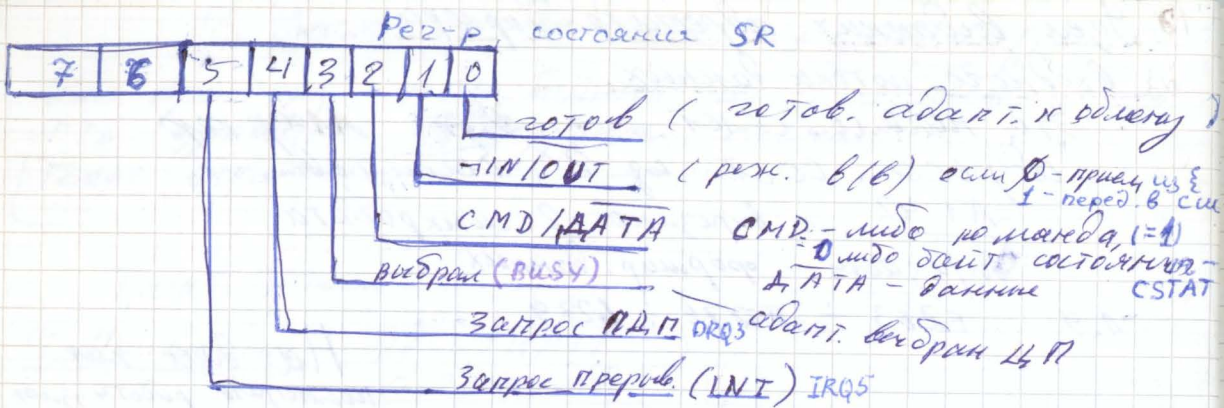 Рег-р состояния SR
7 6 5 4 3 2 1 0
готов ( готов. адапт. к обмену )
IN/OUT ( реж. в/в) если 0 - прием из
1 - перед. в
CMD/ДАТА CMD - либо команда, (=1)
=0 либо байт состояния -
CSTAT
выбран (BUSY) ДАТА - данные
адапт. выбран ЦП
Запрос ПДП DRQ3
Запрос прерыв. (INT) IRQ5